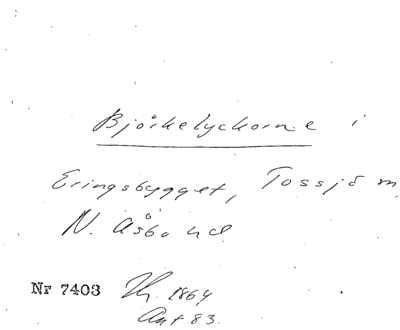 Björkelyckorne i
Eringsbygget, Tossjö m
N. Åsbo hd
Nr 7403 1864
Ant 83.